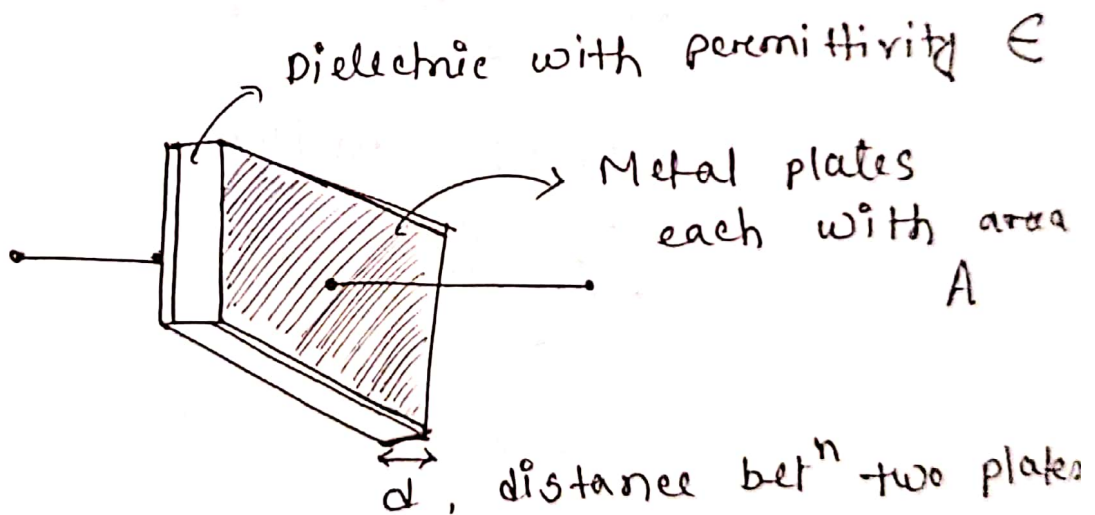 Dielectric with permittivity ∈
Metal plates
each with area
A
d, distance betⁿ two plates